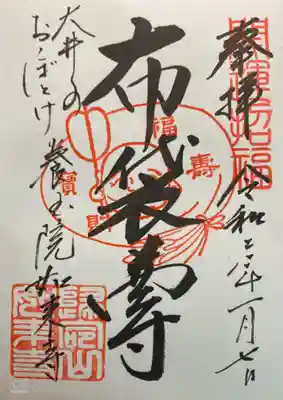 開運招福
奉拝
令和三年一月七日
布袋尊
福
壽
寶
大井の
おゝぼとけ
養玉院
如来寺
歸命山
如来寺